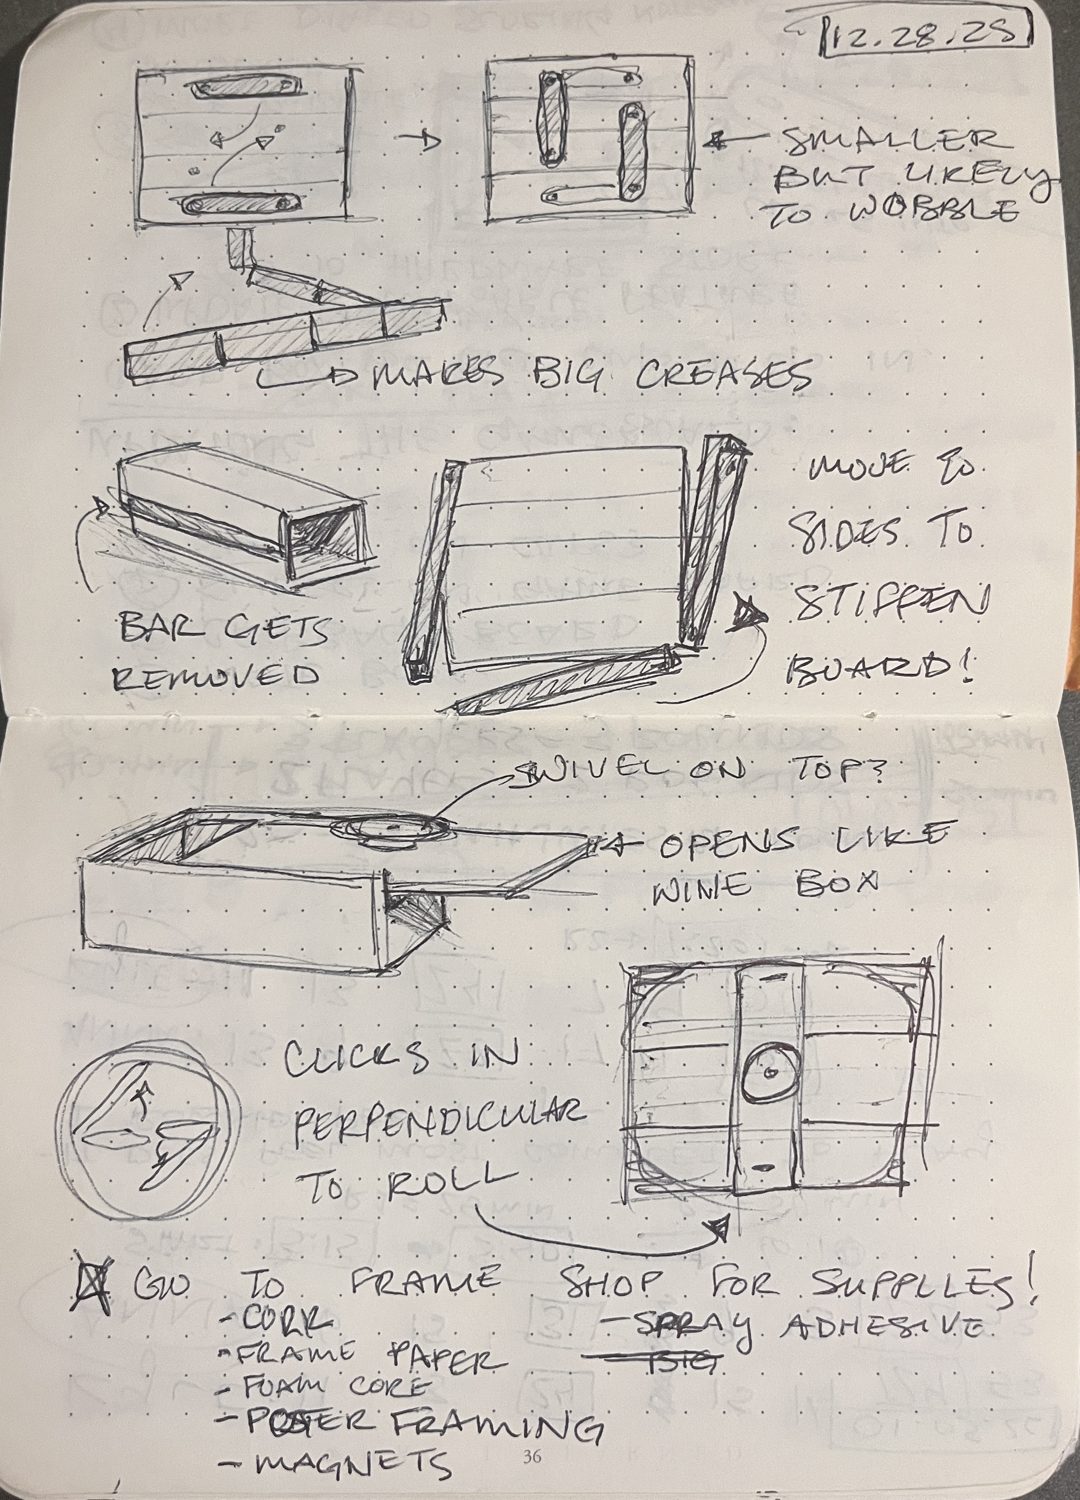 12.28.25
SMALLER
BUT LIKELY
TO WOBBLE
MAKES BIG CREASES
BAR GETS
REMOVED
MOVE to
SIDES TO
STIFFEN
BOARD!
SWIVEL ON TOP?
OPENS LIKE
WINE BOX
CLICKS IN
PERPENDICULAR
TO ROLL
GO TO FRAME SHOP FOR SUPPLIES!
- CORK
- FRAME PAPER
- FOAM CORE
- POSTER FRAMING
- MAGNETS
- SPRAY ADHESIVE
BIG
36